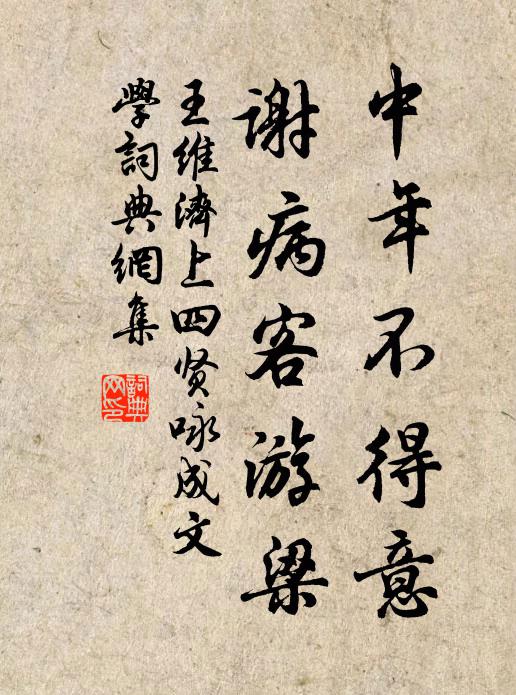 中年不得意
謝病客游梁
王維濟上四贤咏成文
學詞典網集
詞典网印